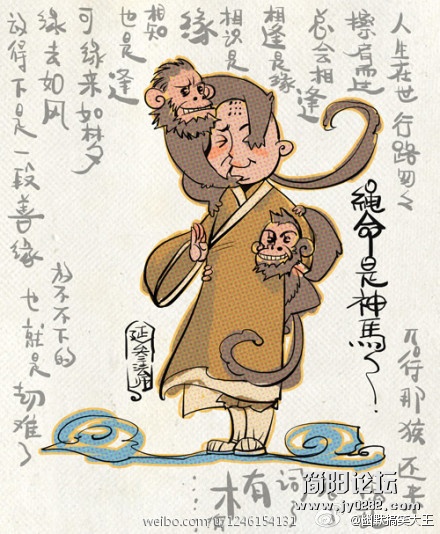 人生在世行路匆匆
擦肩而过
总会相逢
相逢是缘
相识是缘
相知也是逢
可缘来如梦
缘去如风
放得下是一段善缘
放不下的
也就是劫难了
繩命是神馬～
延参法师
那猴还来
有
词
简阳论坛
www.jy0832.com
weibo.com/071246154131
@幽默搞笑大王